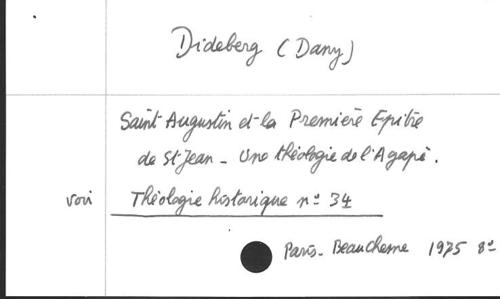 Dideberg (Dany)
Saint Augustin et la Première Epitre
de St Jean - Une théologie de l'Agapè.
voir Théologie historique n° 34
Paris - Beauchesne 1975 8°